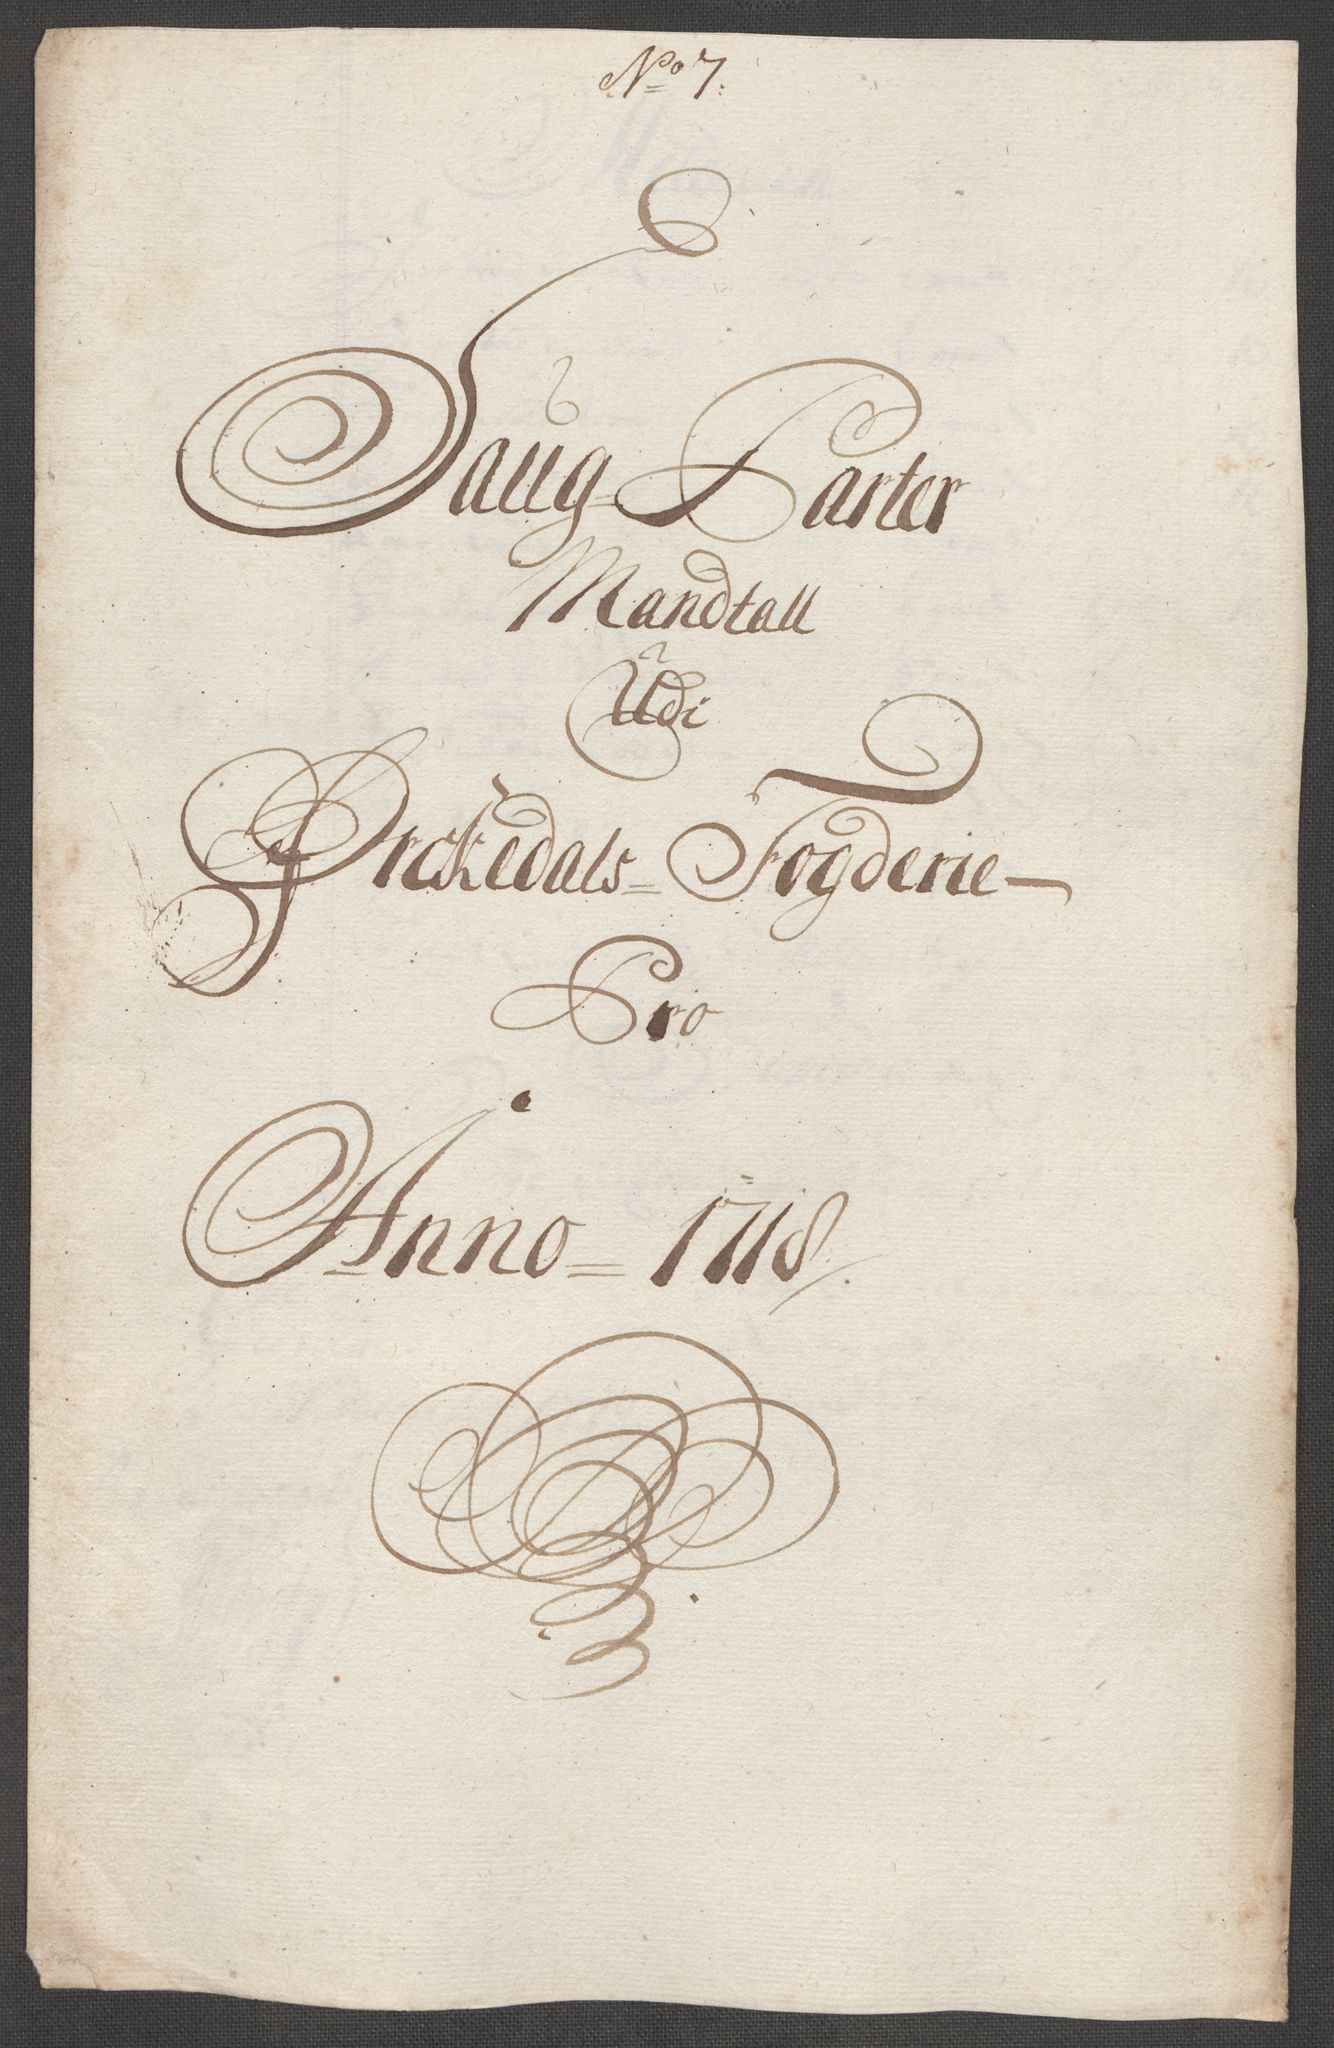 No 7.
Saug=Parter
Mandtall
Udi
Ørckedals=Fogderie—
Pro
Anno=1718.